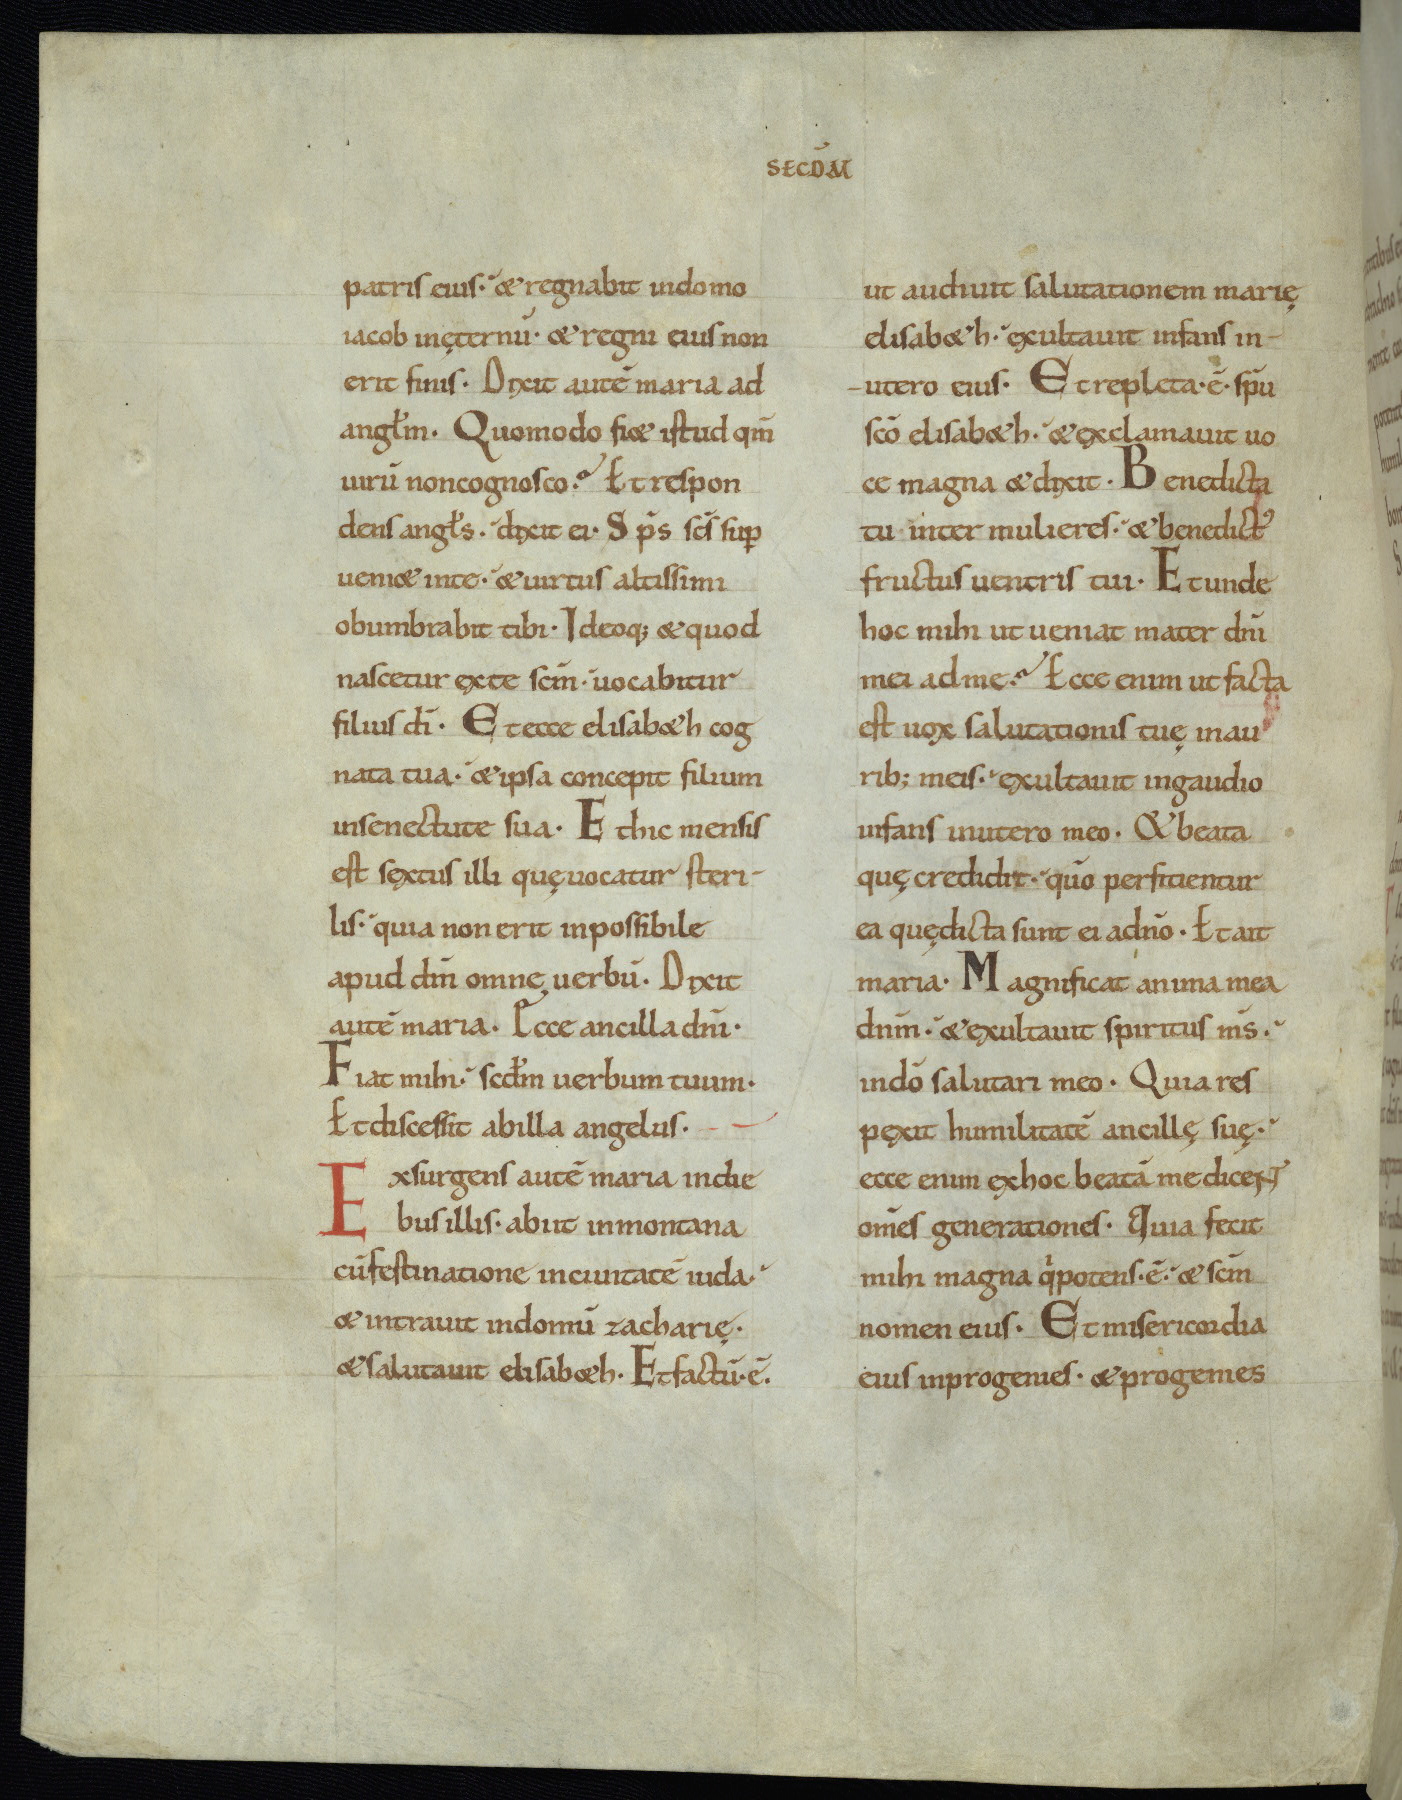 SECDM̄
patris eius· & regnabit indomo
iacob inęternū· & regni eius non
erit finis· Dixit autē maria ad
angłm· Quomodo fi& istud qm̄
uirū noncognosco? Et respon
dens angłs· dixit ei· Sp̄s sc̄s sup̱
ueni& inte· & uirtus altissimi
obumbrabit tibi· Ideoq; & quod
nascetur exte sc̄m· uocabitur
filius dī· Et ecce elisab&h cog
nata tua· & ipsa concepit filium
insenectute sua· Et hic mensis
est sextus illi quę uocatur steri-
lis· quia non erit inpossibile
apud dm̄ omne uerbū· Dixit
autē maria· Ecce ancilla dnī·
Fiat mihi· scdm̄ uerbum tuum·
Et discessit abilla angelus·
Exsurgens autē maria indie
bus illis· abiit inmontana
cū festinatione inciuitatē iuda·
& intrauit indomū zacharię·
& salutauit elisab&h· Et factū·ē·
ut audiuit salutationem marię
elisab&h· exultauit infans in-
-utero eius· Et repleta·ē· spū
scō elisab&h· & exclamauit uo
ce magna & dixit· Benedicta
tu inter mulieres· & benedictꝰ
fructus uentris tui· Et unde
hoc mihi ut ueniat mater dnī
mei ad me? Ecce enim ut facta
est uox salutationis tuę inau
rib; meis· exultauit ingaudio
infans inutero meo· & beata
quę credidit· qūo perficientur
ea quę dicta sunt ei adn̄o· Et ait
maria· Magnificat anima mea
dnm̄· & exultauit spiritus m̄s·
indō salutari meo· Quia res
pexit humilitatē ancillę suę·
ecce enim exhoc beatā me dicent
om̄es generationes· Quia fecit
mihi magna qͥ potens·ē· & sc̄m
nomen eius· Et misericordia
eius inprogenies· & progenies